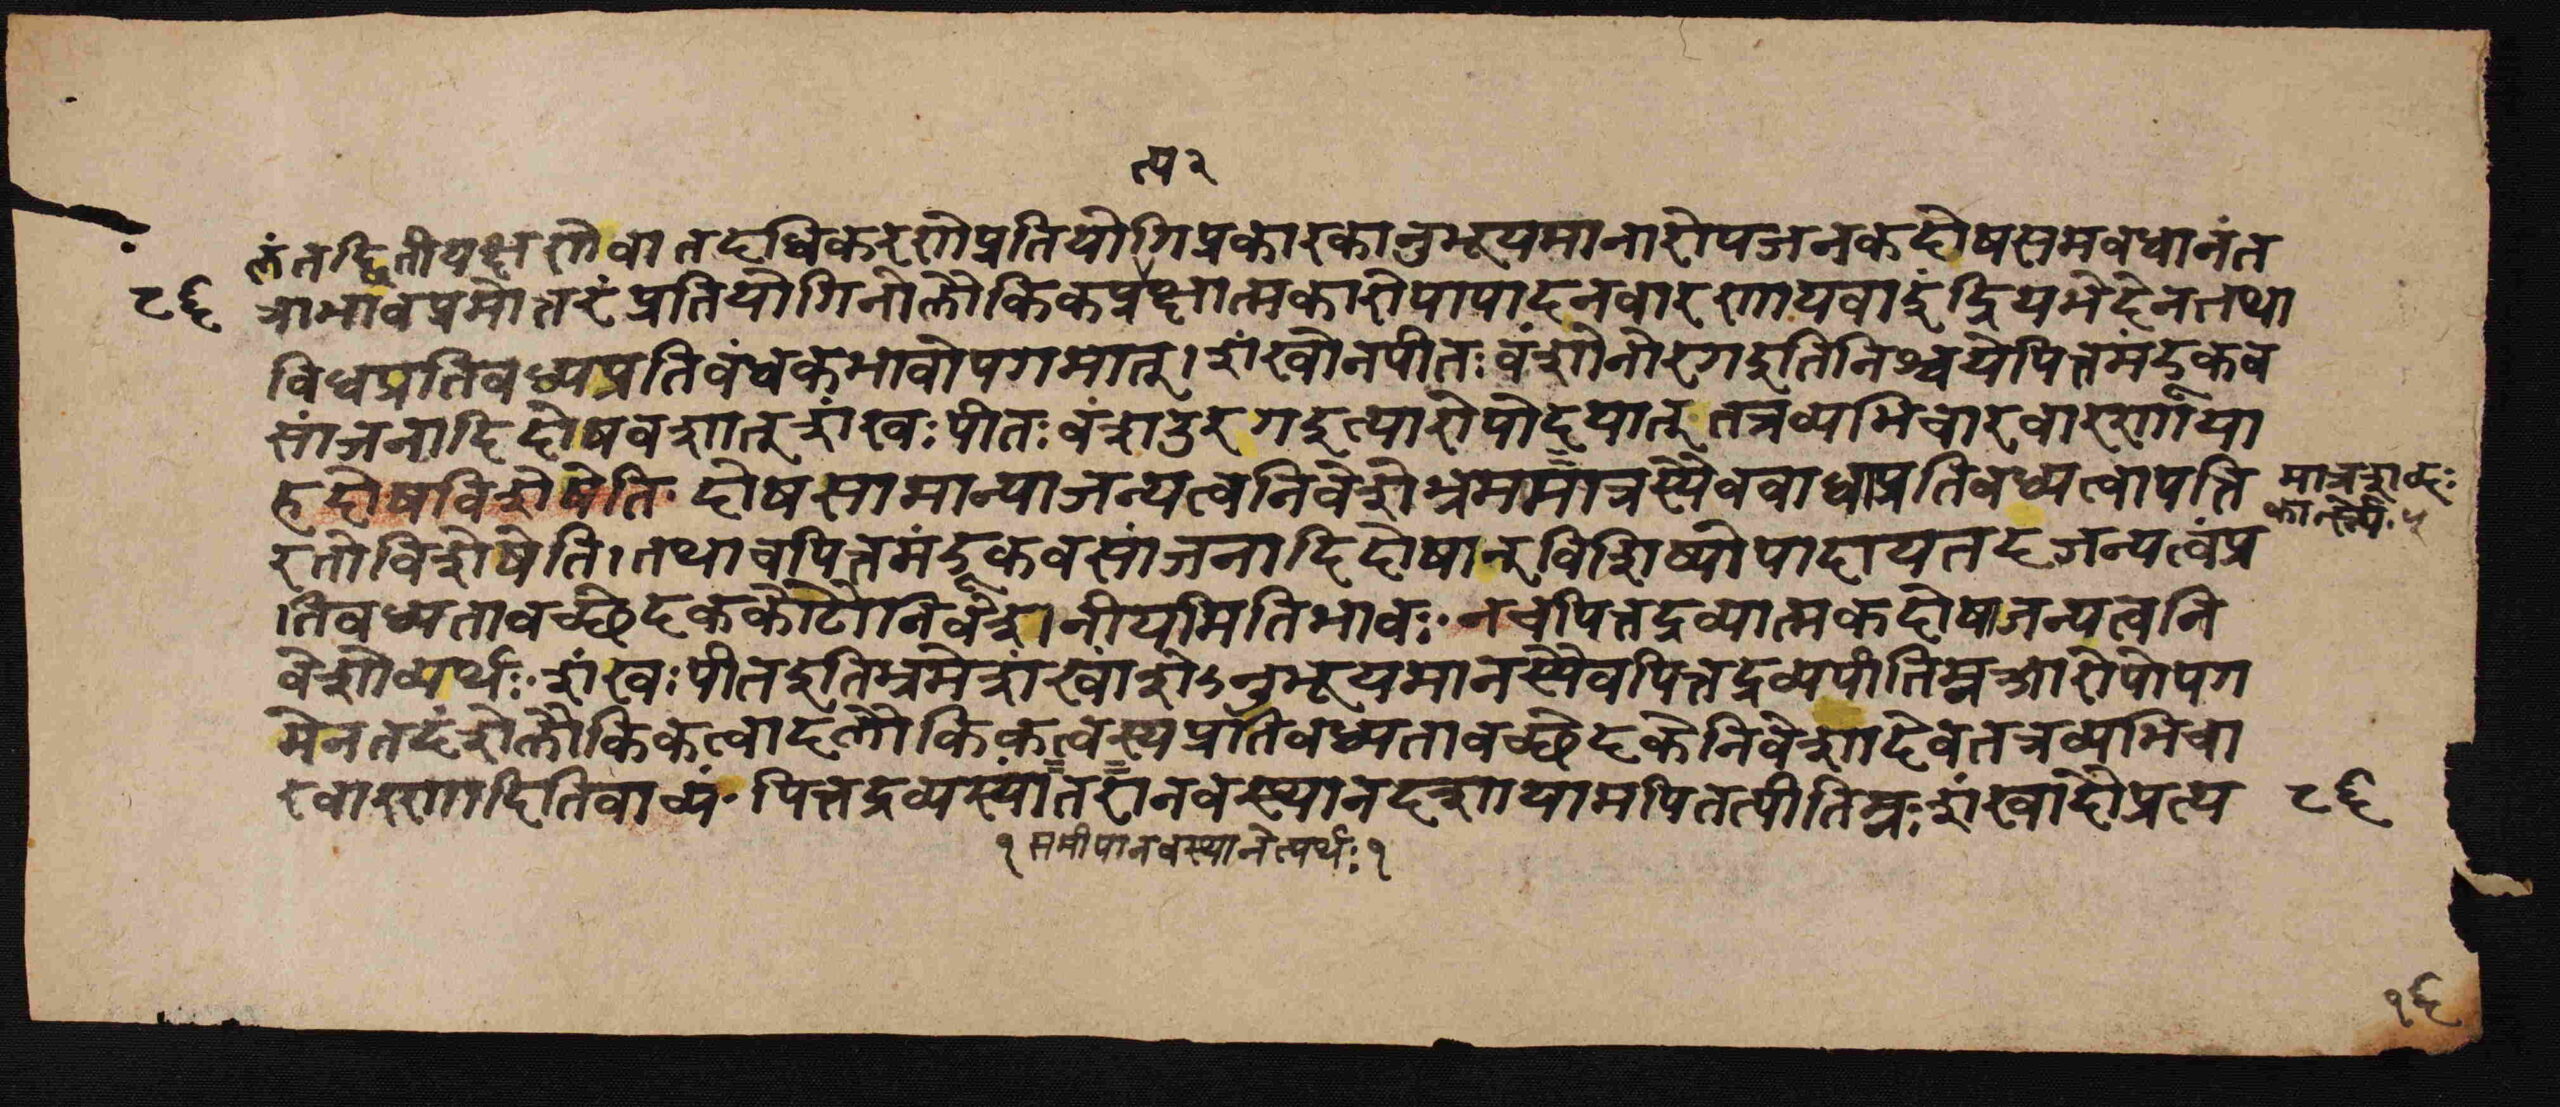 त्य २
लं तद्द्वितीयक्षणे वा तदधिकरणे प्रतियोगिप्रकारकानुभूयमानारोपजनकदोषसमवधानं त
त्राभावप्रमोत्तरं प्रतियोगिनो लौकिकप्रक्षात्मकारोपापादनवारणाय वा इंद्रियभेदेन तथा
८६
विधप्रतिवध्यप्रतिवंधकभावोपगमात् । शंखो न पीतः वंशो नोरग इति निश्चयेपि त्तमंडूकव
सांजनादिदोषवशात् शंखः पीतः वंश उरग इत्यारोपोदयात् तत्र व्यभिचारवारणाया
ह दोषविशेषेति दोषसामान्याजन्यत्वनिवेशे भ्रममात्रस्यैव वाधाप्रतिवध्यत्वापत्ति
मात्रशब्दः
रतो विशेषेति । तथा च पित्तमंडूकवसांजनादिदोषान् विशिष्योपादाय तदजन्यत्वं प्र
तिवध्यतावच्छेदककोटौ निवेशनीयमिति भावः न च पित्तद्रव्यात्मकदोषाजन्यत्वनि
वेशो व्यर्थः शंखः पीत इति भ्रमे शंखांशेऽनुभूयमानस्यैव पित्तद्रव्यपीतिम्न आरोपोपग
मेन तदंशे लौकिकत्वादलौकिकत्वस्य प्रतिवध्यतावच्छेदके निवेशादेव तत्र व्यभिचा
रवारणादिति वाच्यं पित्तद्रव्यस्यांतरानवस्थानदशायामपि तत्पीतिम्नः शंखादौ प्रत्य
८६
१ समीपानवस्थानेत्यर्थः १
१६